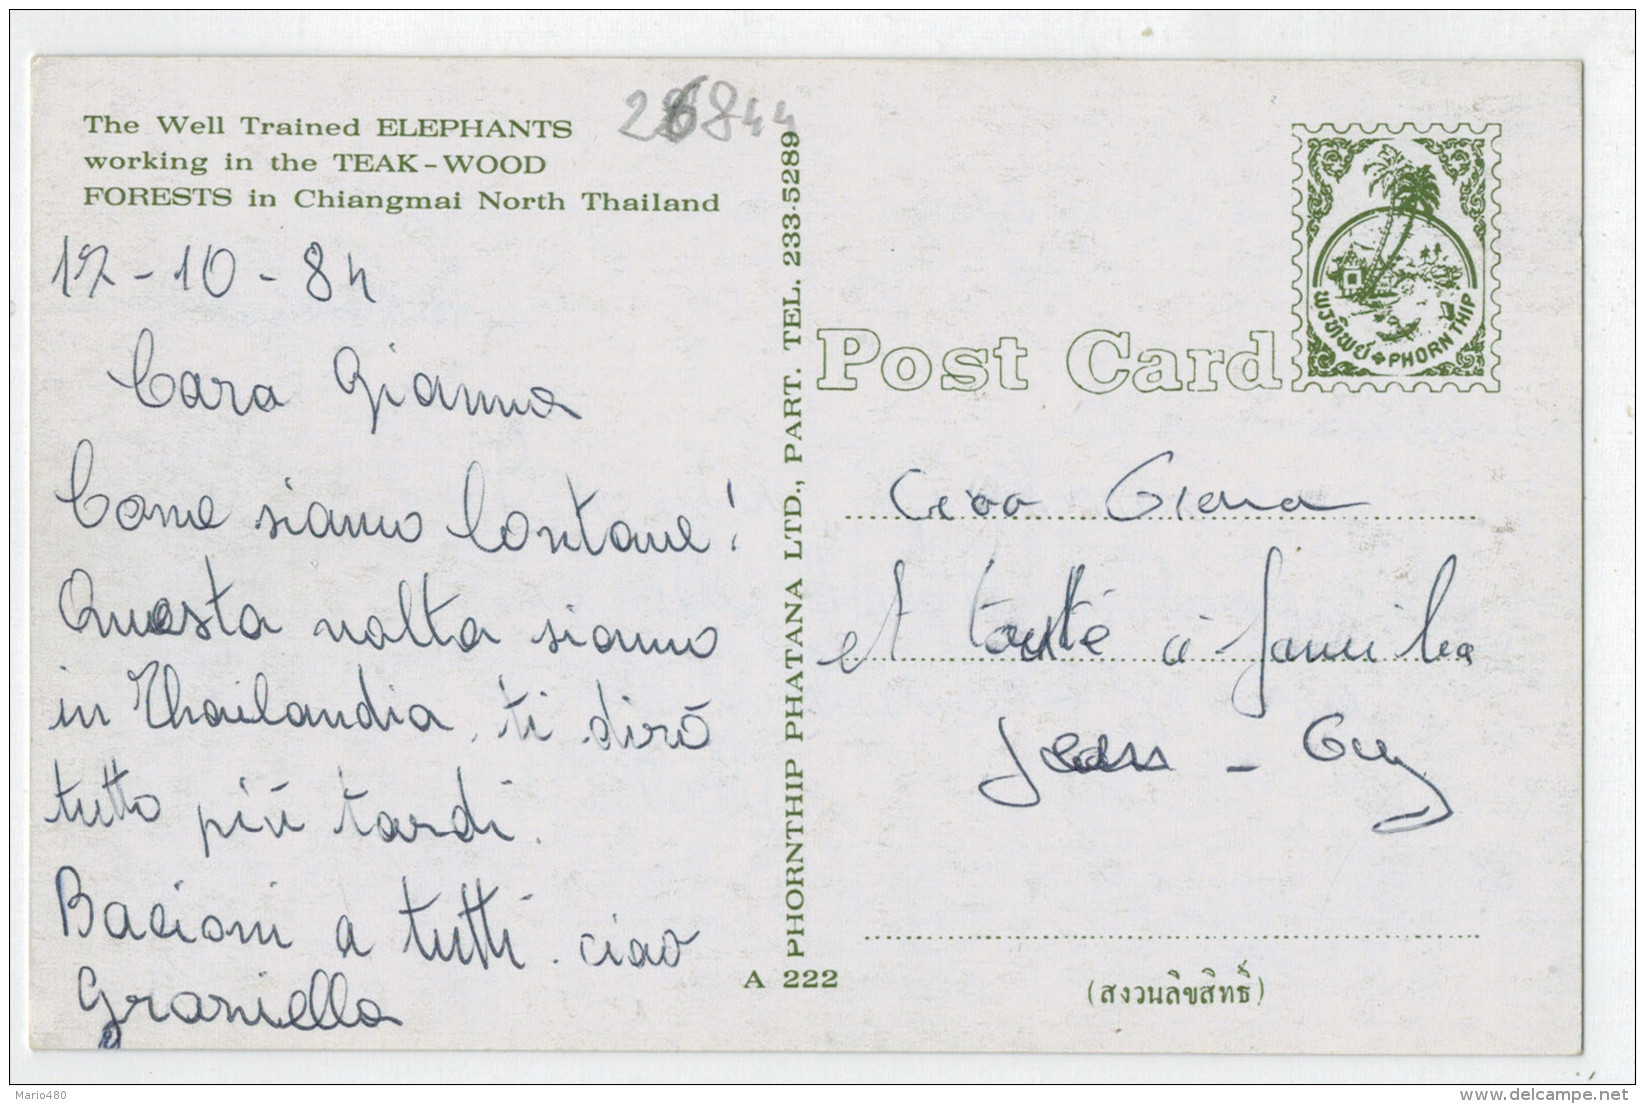 The Well Trained ELEPHANTS
working in the TEAK-WOOD
FORESTS in Chiangmai North Thailand
26844
17-10-84
Cara Gianna
Come siamo lontane!
Questa volta siamo
in Thailandia, ti dirò
tutto più tardi.
Bacioni a tutti. ciao
Graziella
PHORNTHIP PHATANA LTD., PART. TEL. 233-5289
A 222
พรทิพย์ PHORNTHIP
Post Card
Ciao Giana
et touté a familia
Jean-Guy
(สงวนลิขสิทธิ์)
Mario480
delcampe.net